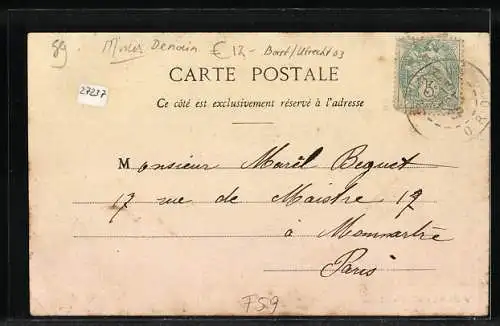 59 Mines Denain € 12- Borst/Utrecht 03
CARTE POSTALE
27237
Ce côté est exclusivement réservé à l'adresse
5
Monsieur Marêl Beguet
17 rue de Maistre 17
à Mommartre
Paris
FS9